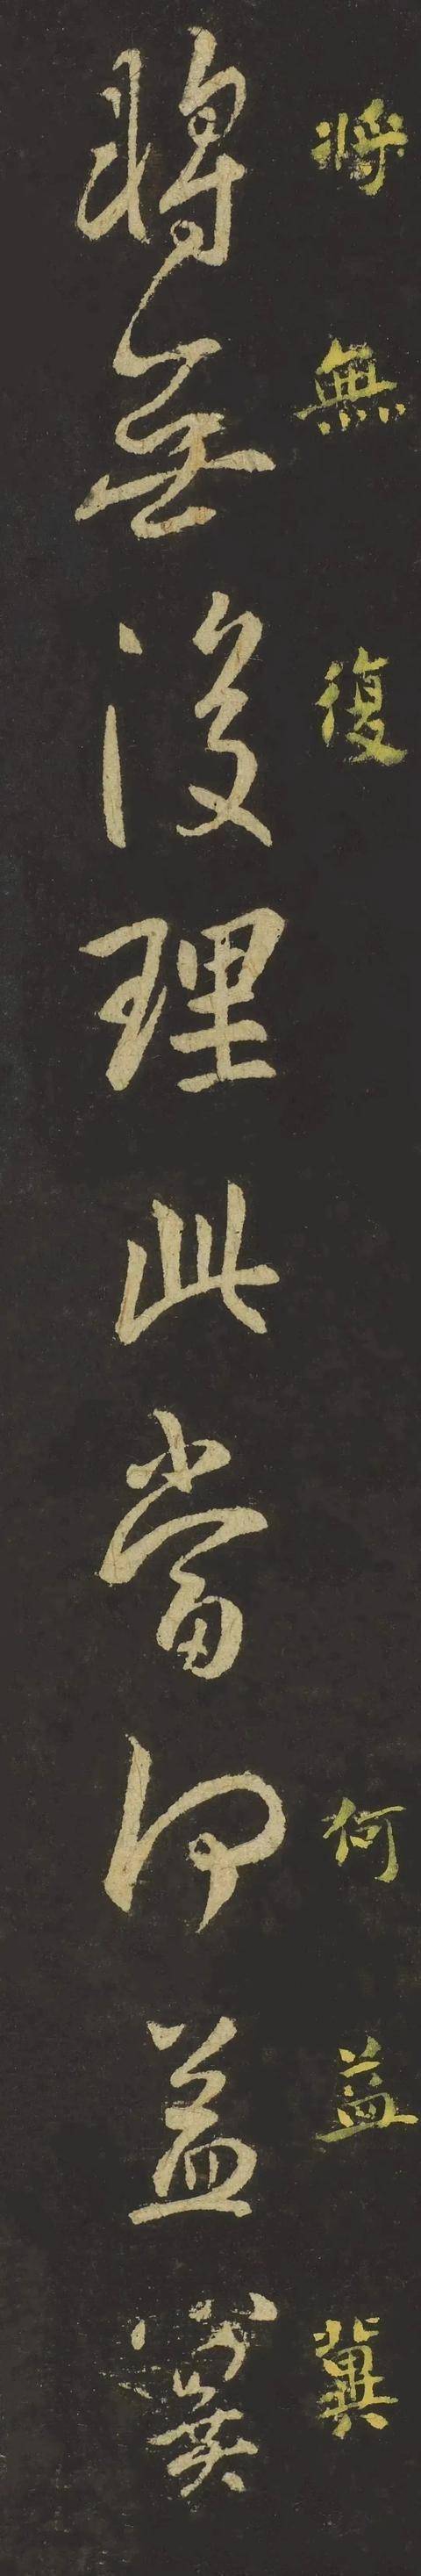 將無復
何益冀
將無復理此當何益冀